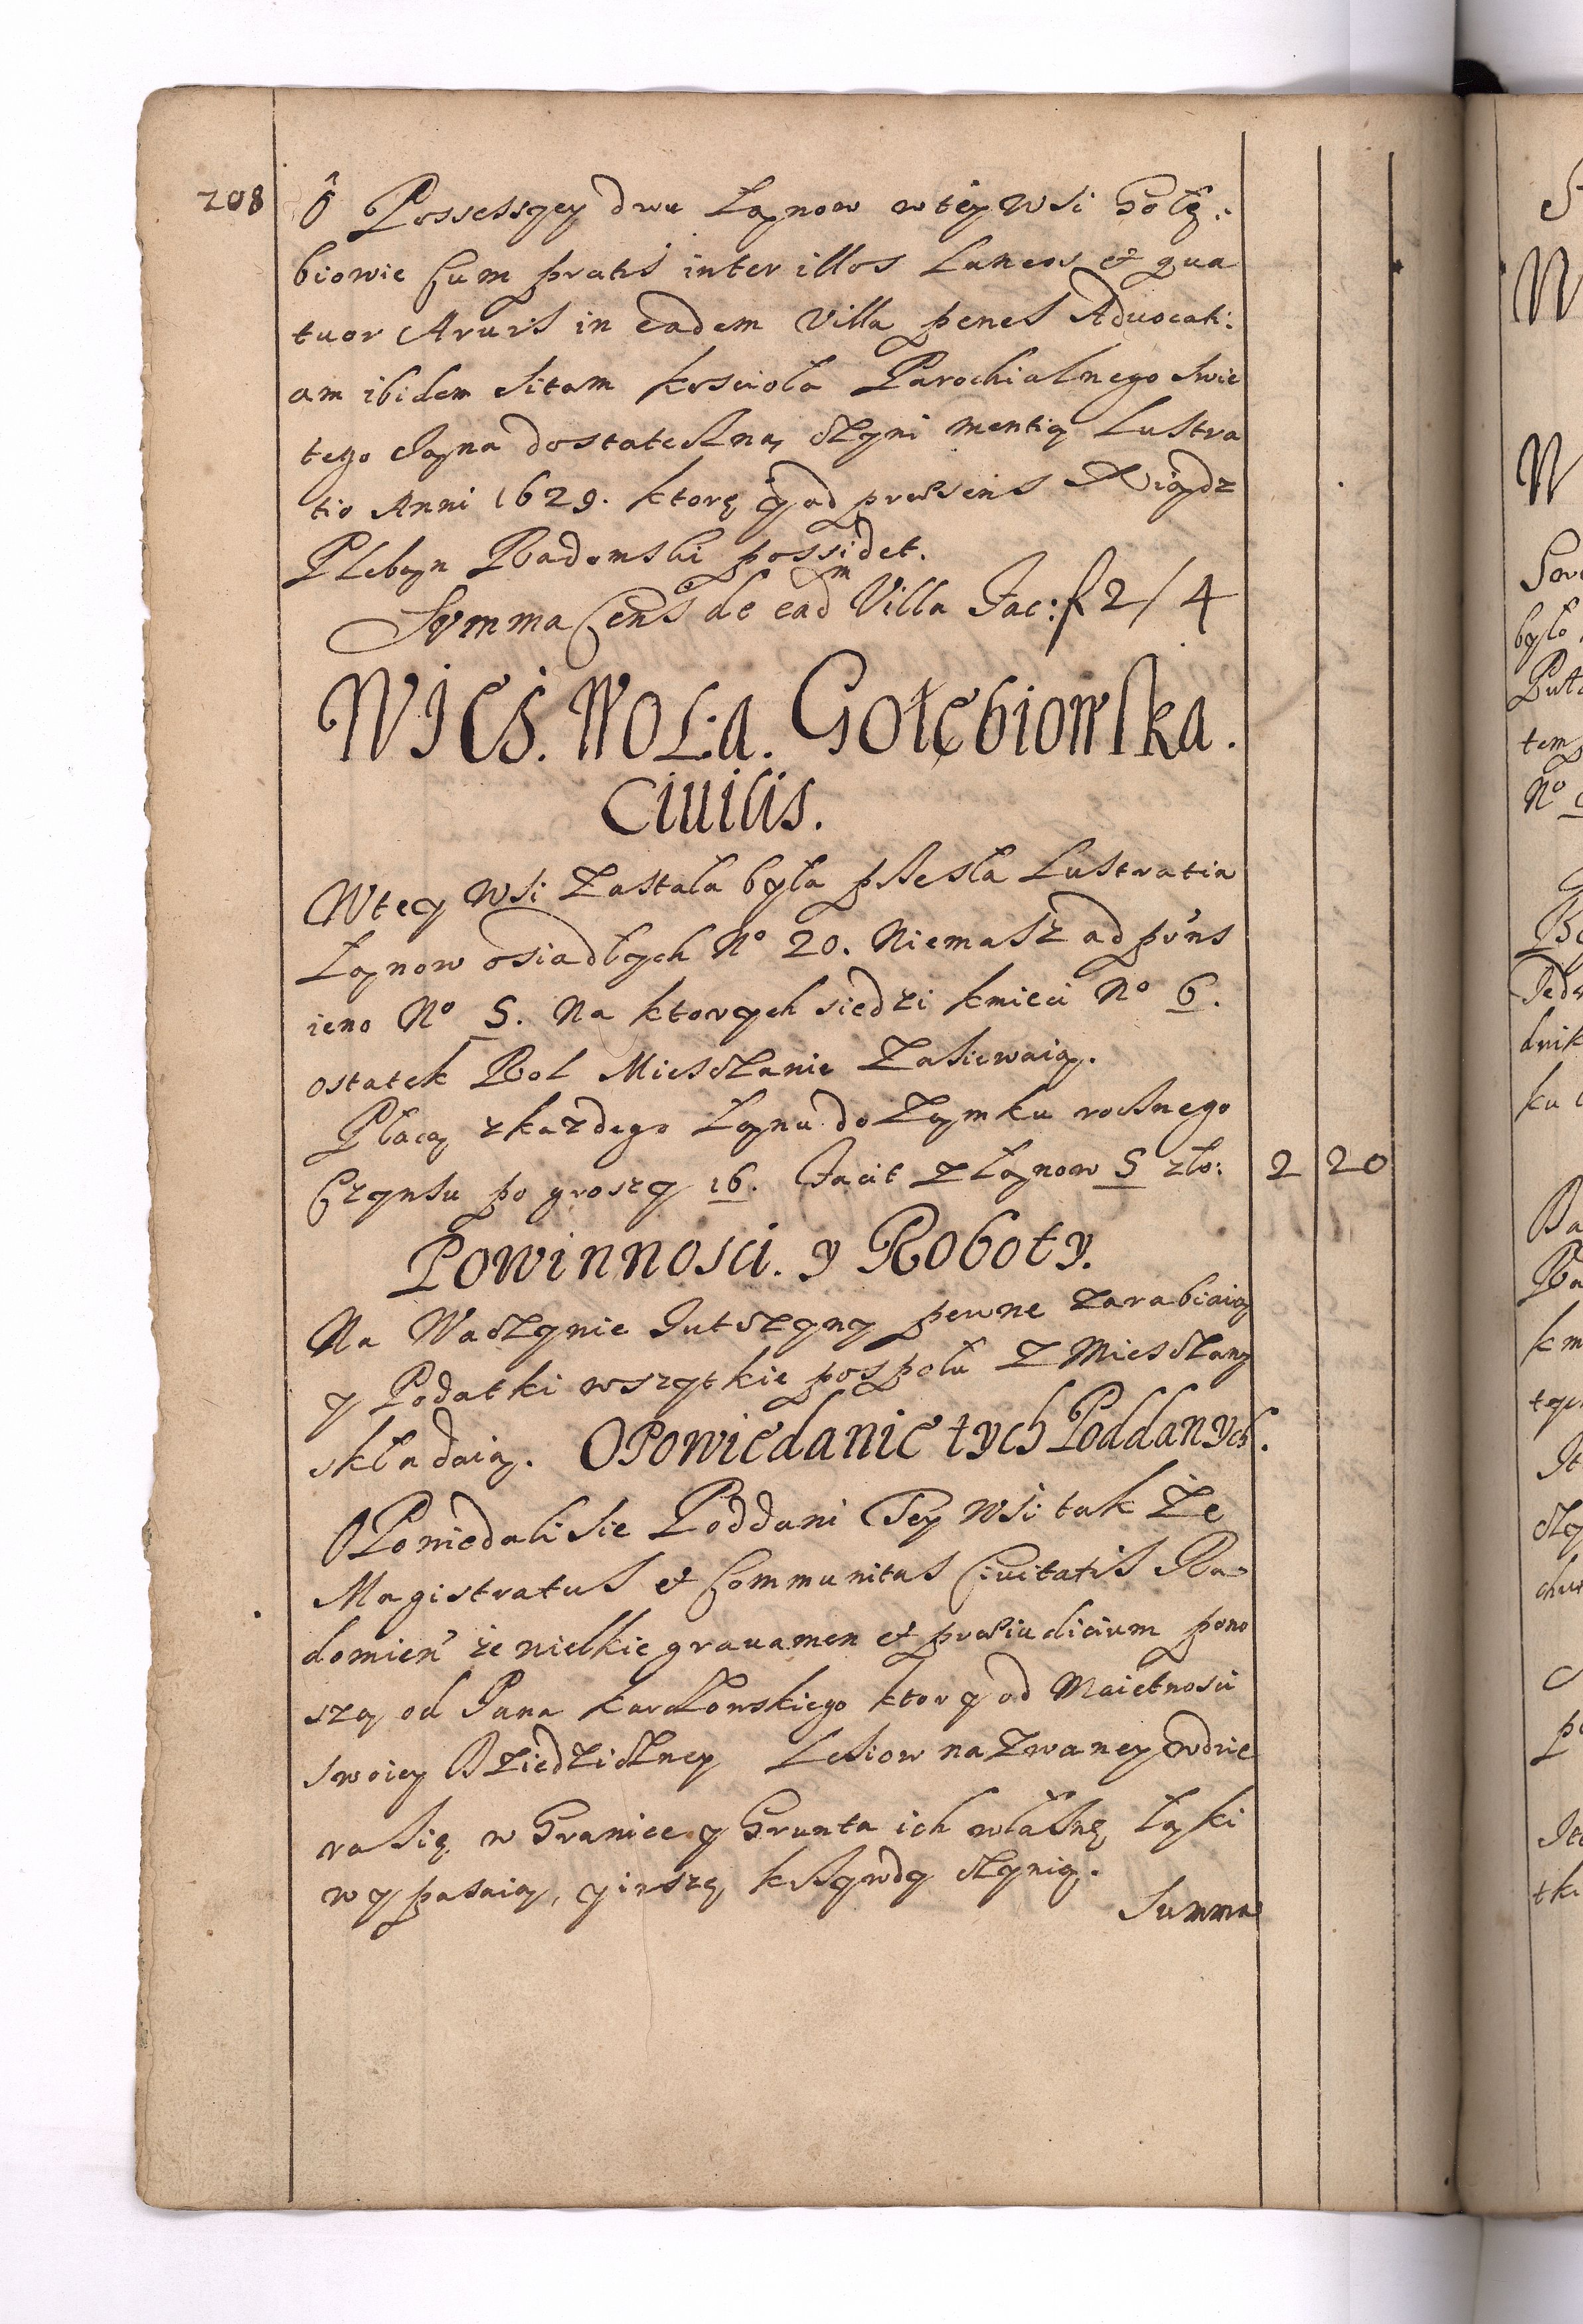 208
O Possessyey dwu Łanow w tey Wsi Gołę:
biowie Cum pratis inter illos Laneos et qua
tuor Aruis in eadem Villa penes Aduocati:
am ibidem Sitam kosciola Parochialnego Swie
tego Jana dostateczną czyni mentią Lustra
tio Anni 1629. ktorę y ad præsens Xiądz
Pleban Radomski possidet.
Summa Cens9 de eadm Villa Fac: f 2/4
WIES. WOLA. GOŁĘBIOWSKA.
CIUILIS.
W tey Wsi Zastała była przeszła Lustratia
Łanow osiadłych No 20. Niemasz ad pñs
ieno No 5. Na ktorych siedzi kmieci No 6.
ostatek Rol Miesczanie Zasiewaią.
Płacą z kazdego Łanu do Zamku rocznego
Czynsu po groszy 16. Facit z łanow 5 zło: 2 20
Powinnosci. y Roboty.
Na Wasczynie Jutszyny pewne zarabiaią
y Podatki wszytkie pospołu z Miesczany
składaią. Opowiedanie tych Poddanych.
Opowiedali sie Poddani Tey Wsi tak Ze
Magistratus et Communitas Ciuitatis Ra
domien ze wielkie grauamen et præiudicium pono
szą od Pana karczowskiego ktory od Maietnosci
swoiey Dziedziczney Lesiow nazwaney wdzie
ra Się w Granice y Grunta ich własnę łąki
wypasaią, y inszę krzywdy czynią.
Summa